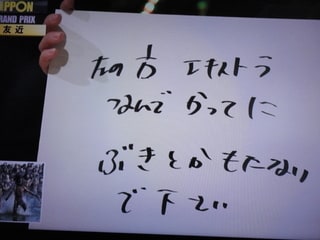 IPPON
GRAND PRIX
友近
左の方 エキストラ
なんで かってに
ぶきとかもたない
で下さい